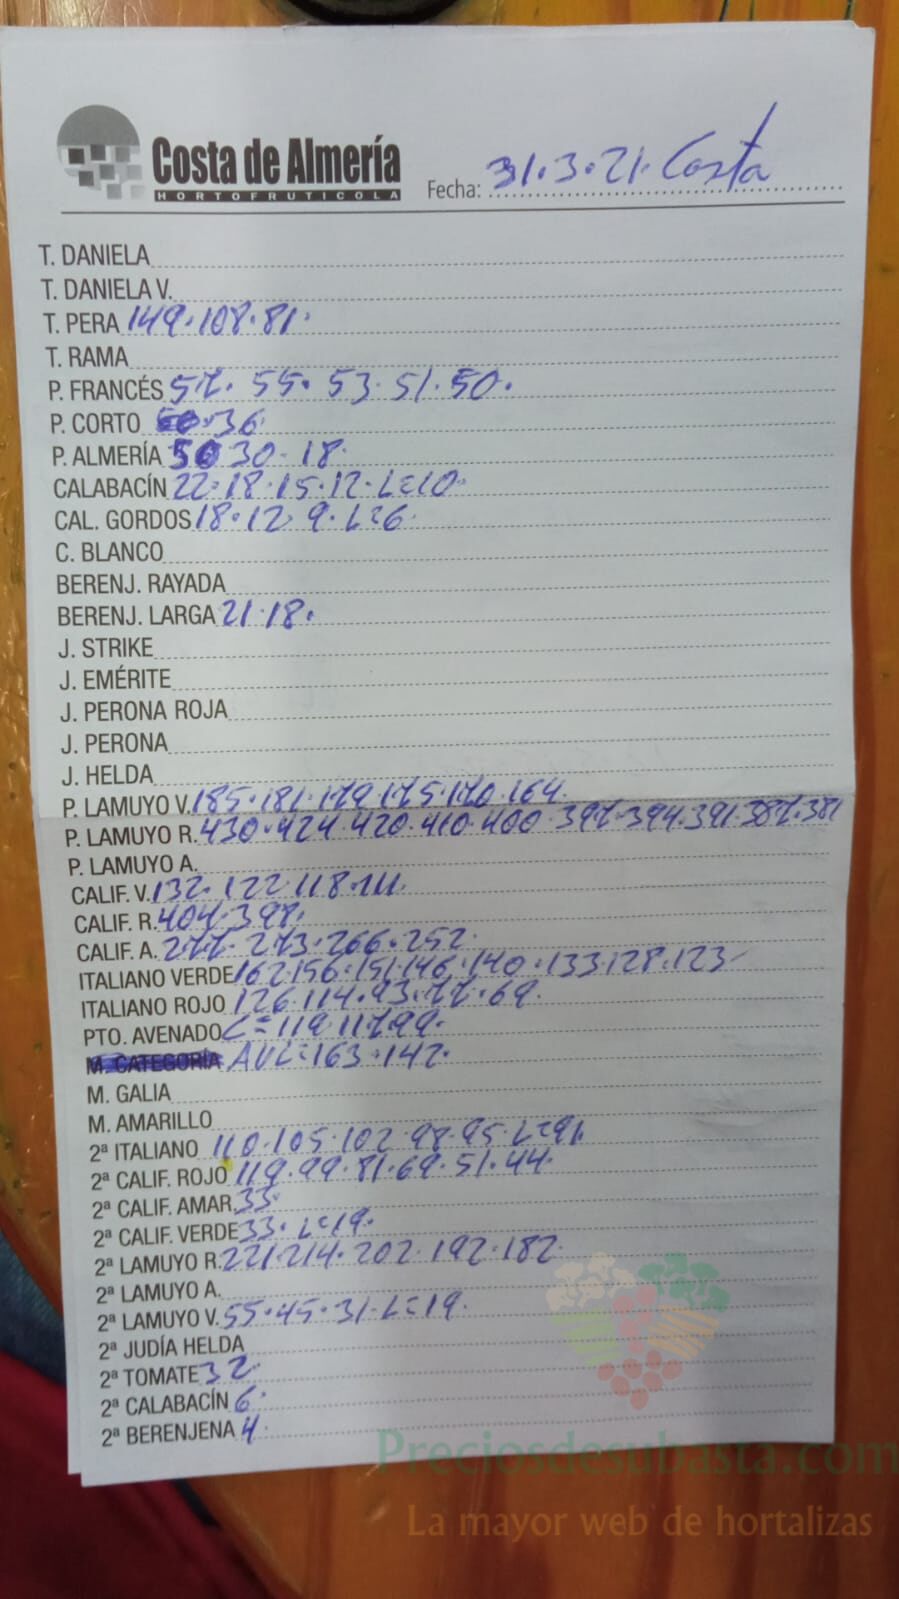 Costa de Almería
HORTOFRUTICOLA
Fecha: 31.3.21. Costa
T. DANIELA
T. DANIELA V.
T. PERA 149.108.81.
T. RAMA
P. FRANCÉS 57. 55. 53.51.50.
P. CORTO 36
P. ALMERÍA 50 30-18.
CALABACÍN 22.18.15.12.L=10
CAL. GORDOS 18.12.9.L=6
C. BLANCO
BERENJ. RAYADA
BERENJ. LARGA 21.18.
J. STRIKE
J. EMÉRITE
J. PERONA ROJA
J. PERONA
J. HELDA
P. LAMUYO V. 185.181.179.175.170.164.
P. LAMUYO R. 430.424.420.410.400.397.394.391.387.381
P. LAMUYO A.
CALIF. V. 132.122.118.111.
CALIF. R. 404.398.
CALIF. A. 277.273.266.252.
ITALIANO VERDE 162.156.151.146.140.133.128.123
ITALIANO ROJO 126.114.93.77.69.
PTO. AVENADO C=119.117.99.
M. CATEGORÍA AVL=163.142.
M. GALIA
M. AMARILLO
2ª ITALIANO 110.105.102.98.95.L=91.
2ª CALIF. ROJO 119.99.81.69.51.44.
2ª CALIF. AMAR. 33
2ª CALIF. VERDE 33. L=19.
2ª LAMUYO R. 221.214.202.192.182.
2ª LAMUYO A.
2ª LAMUYO V. 55.45.31.L=19.
2ª JUDÍA HELDA
2ª TOMATE 32
2ª CALABACÍN 6.
2ª BERENJENA 4.
Preciosdesubasta.com
La mayor web de hortalizas